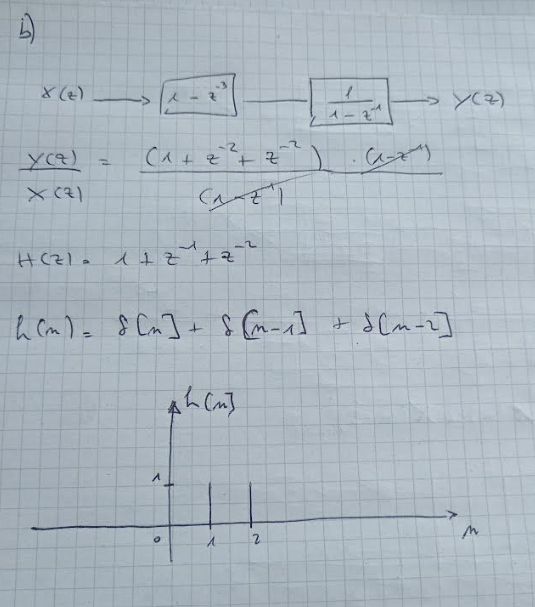 b)
X(z) → 1 - z⁻³ — 1/(1 - z⁻¹) → Y(z)
Y(z)/X(z) = (1 + z⁻² + z⁻²) · (1 - z⁻¹) / (1 - z⁻¹)
H(z) = 1 + z⁻¹ + z⁻²
h(n) = δ[n] + δ[n-1] + δ[n-2]
h[n]
1
0 1 2 n